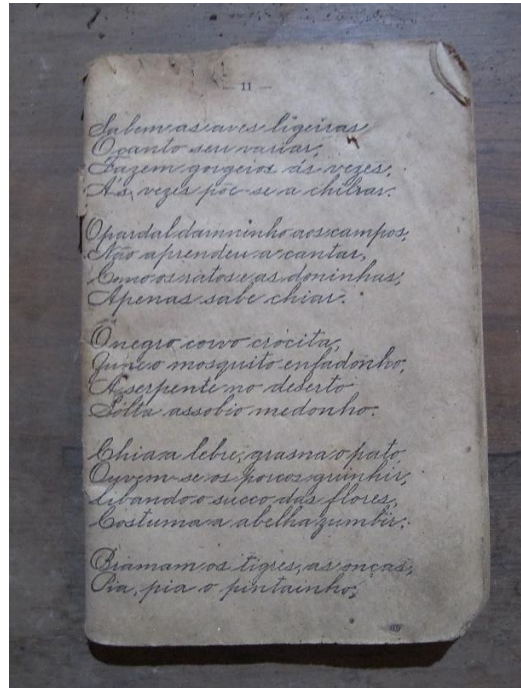 — 11 —
Sabem as aves ligeiras
O canto seu variar,
Fazem gorgeios ás vezes,
A's vezes põe-se a chilrar.
O pardal damninho aos campos,
Não aprendeu a cantar,
Como os ratos e as doninhas,
Apenas sabe chiar.
O negro corvo crócita,
Zune o mosquito enfadonho,
A serpente no deserto
Sólta assobio medonho.
Chia a lebre, grasna o pato,
Ouvem-se os porcos grunhir,
Libando o succo das flores,
Costuma a abelha zumbir.
Bramam os tigres, as onças,
Pia, pia o pintainho,